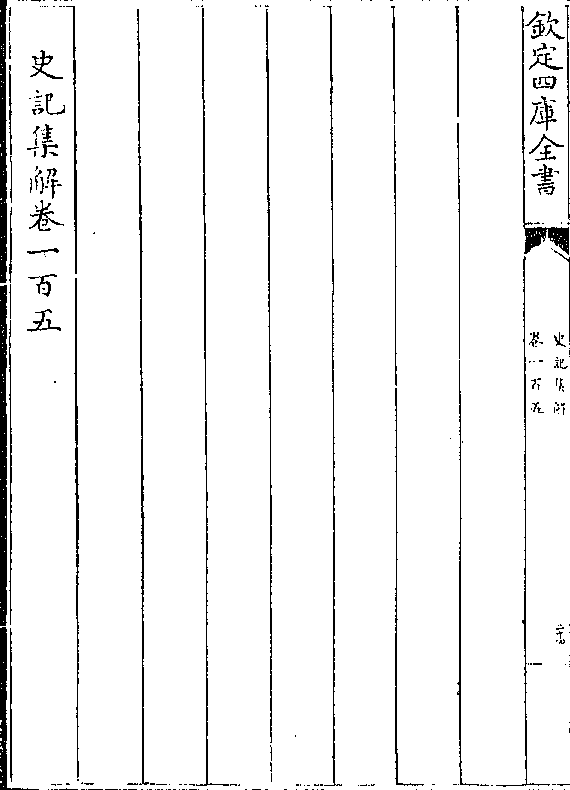 欽定四庫全書
史記集解
卷一百五
史記集解卷一百五